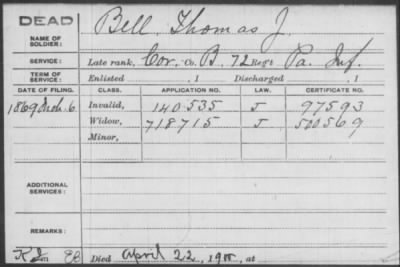 DEAD
NAME OF SOLDIER: Bell, Thomas J.
SERVICE: Late rank, Cor, Co. B, 72 Reg't Pa. Inf.
TERM OF SERVICE: Enlisted , 1 Discharged , 1
DATE OF FILING. CLASS. APPLICATION NO. LAW. CERTIFICATE NO.
1869 Mch. 6 Invalid, 140.535 J 97593
Widow, 718715 J 500569
Minor,
ADDITIONAL SERVICES:
REMARKS:
Died April 22, , at